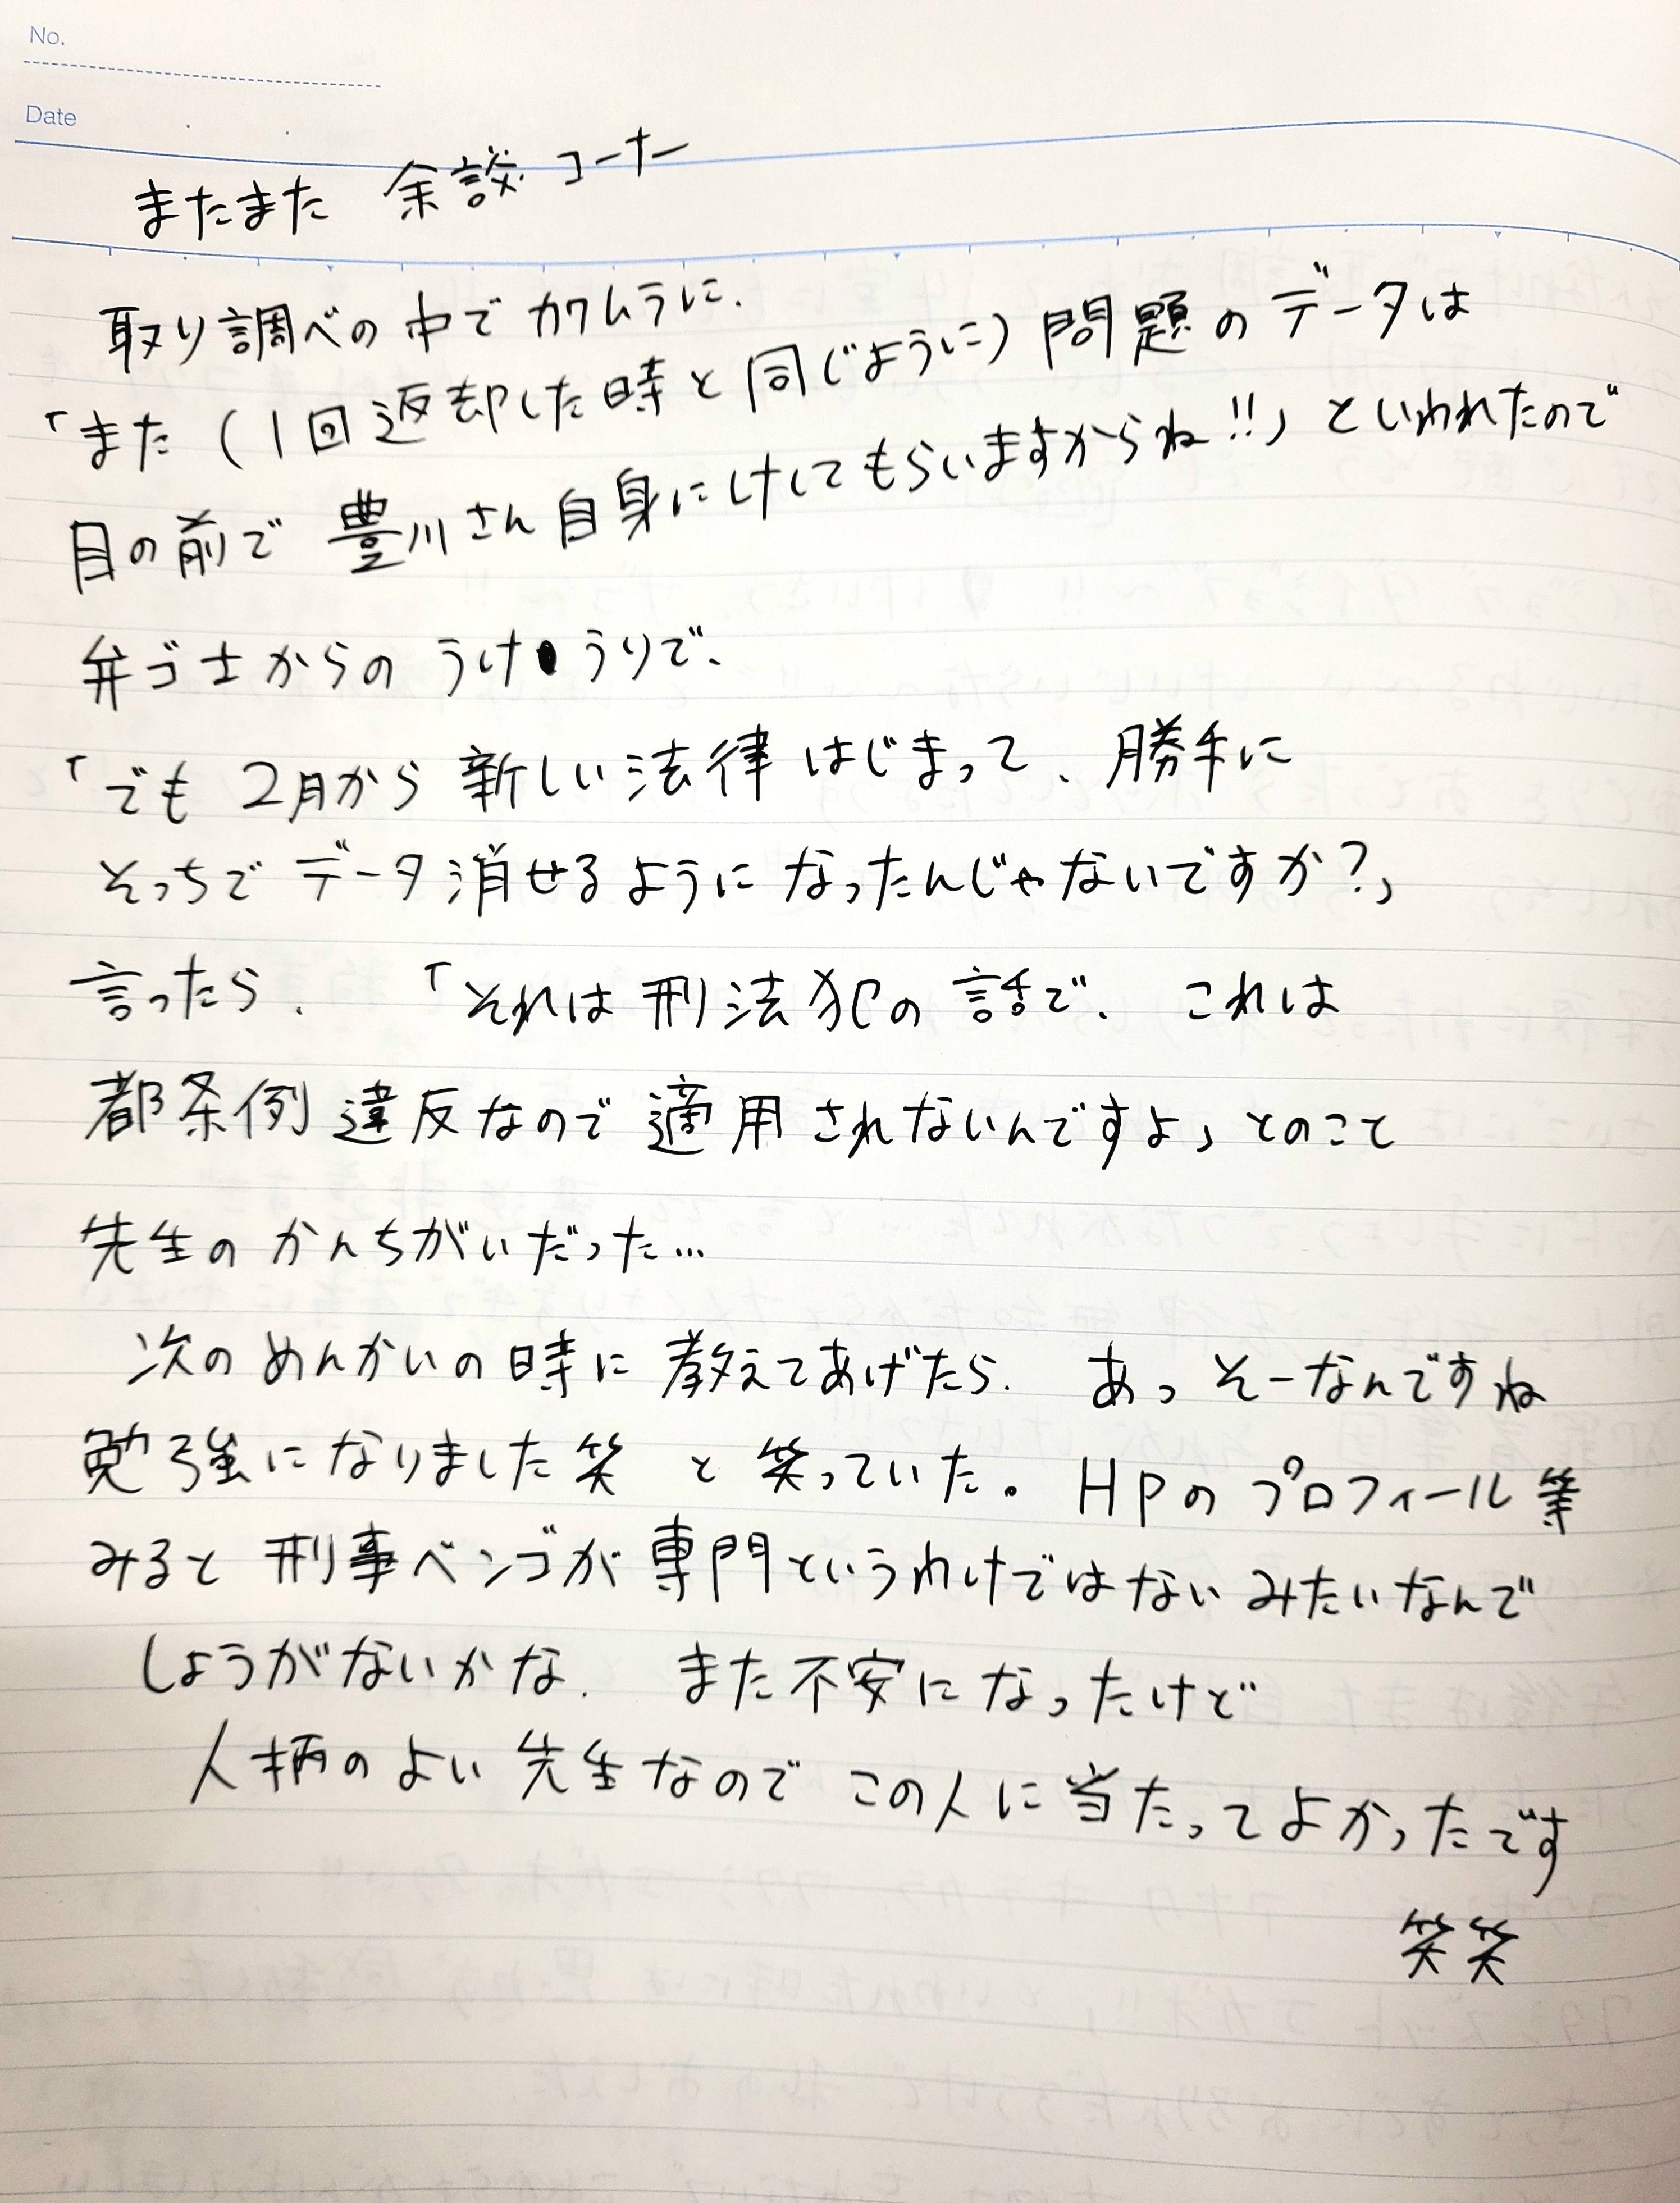 No.
Date
またまた 余談コーナー
取り調べの中でカワムラに、
「また(1回返却した時と同じように)問題のデータは
目の前で豊川さん自身にけしてもらいますからね!!」といわれたので
弁ゴ士からのうけうりで、
「でも2月から新しい法律はじまって、勝手に
そっちでデータ消せるようになったんじゃないですか?」
言ったら、「それは刑法犯の話で、これは
都条例違反なので適用されないんですよ」とのこと
先生のかんちがいだった…
次のめんかいの時に教えてあげたら、あっそーなんですね
勉強になりました笑 と笑っていた。HPのプロフィール等
みると刑事ベンゴが専門というわけではないみたいなんで
しょうがないかな、また不安になったけど
人柄のよい先生なのでこの人に当たってよかったです
笑笑